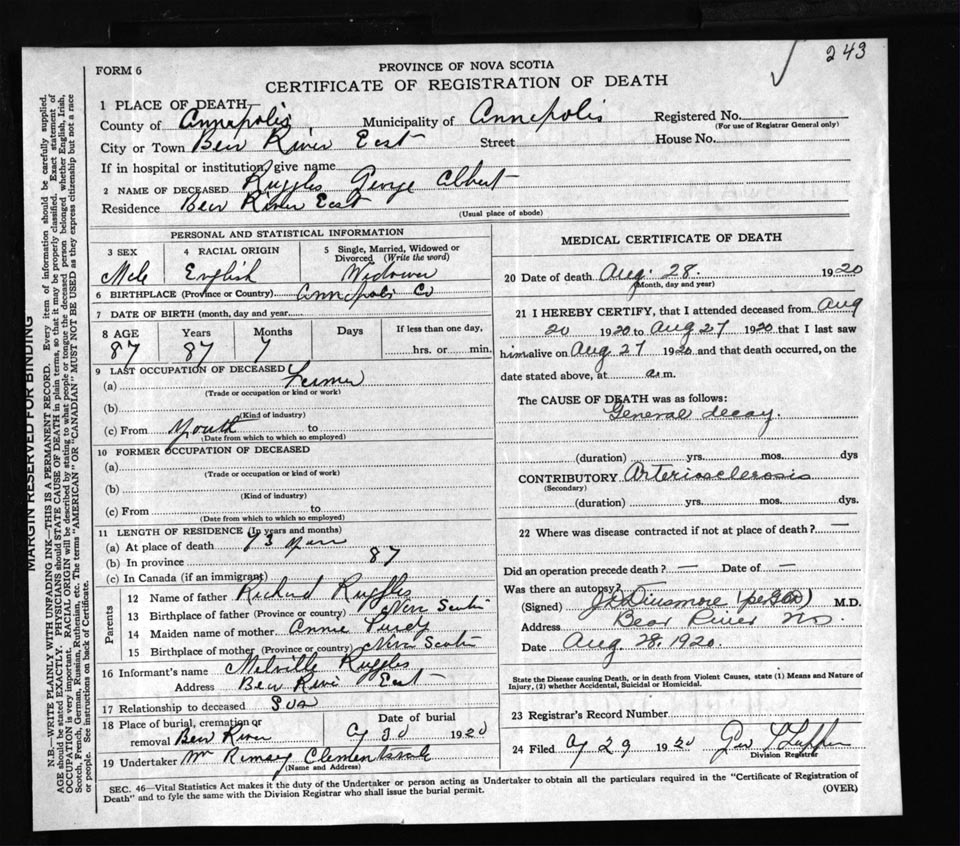 243
FORM 6
PROVINCE OF NOVA SCOTIA
CERTIFICATE OF REGISTRATION OF DEATH
1 PLACE OF DEATH
County of Annapolis Municipality of Annapolis Registered No.
(For use of Registrar General only)
City or Town Bear River East Street House No.
If in hospital or institution, give name
2 NAME OF DECEASED Ruggles George Albert
Residence Bear River East
(Usual place of abode)
PERSONAL AND STATISTICAL INFORMATION
3 SEX 4 RACIAL ORIGIN 5 Single, Married, Widowed or Divorced (Write the word)
Male English Widower
6 BIRTHPLACE (Province or Country) Annapolis Co
7 DATE OF BIRTH (month, day and year)
8 AGE Years Months Days If less than one day,
87 87 7 hrs. or min.
9 LAST OCCUPATION OF DECEASED
(a) Farmer
(Trade or occupation or kind or work)
(b)
(Kind of industry)
(c) From Youth to
(Date from which to which so employed)
10 FORMER OCCUPATION OF DECEASED
(a)
(Trade or occupation or kind of work)
(b)
(Kind of industry)
(c) From to
(Date from which to which so employed)
11 LENGTH OF RESIDENCE (In years and months)
(a) At place of death 73 years
(b) In province 87
(c) In Canada (if an immigrant)
Parents
12 Name of father Richard Ruggles
13 Birthplace of father (Province or country) Nova Scotia
14 Maiden name of mother Annie Purdy
15 Birthplace of mother (Province or country) Nova Scotia
16 Informant's name Melville Ruggles
Address Bear River East
17 Relationship to deceased Son
18 Place of burial, cremation or Date of burial
removal Bear River 30 1920
19 Undertaker Mr Clementsvale
(Name and Address)
MEDICAL CERTIFICATE OF DEATH
20 Date of death Aug. 28. 1920
(Month, day and year)
21 I HEREBY CERTIFY, that I attended deceased from Aug
20 1920 to Aug 27 1920 that I last saw
him alive on Aug 27 1920 and that death occurred, on the
date stated above, at a.m.
The CAUSE OF DEATH was as follows:
General decay.
(duration) yrs. mos. dys
CONTRIBUTORY Arteriosclerosis
(Secondary)
(duration) yrs. mos. dys.
22 Where was disease contracted if not at place of death? —
Did an operation precede death? — Date of —
Was there an autopsy?
(Signed) Dinsmore M.D.
Address Bear River N.S.
Date Aug. 28, 1920.
State the Disease causing Death, or in death from Violent Causes, state (1) Means and Nature of
Injury, (2) whether Accidental, Suicidal or Homicidal.
23 Registrar's Record Number
24 Filed 29 1920 Geo
Division Registrar
SEC. 46—Vital Statistics Act makes it the duty of the Undertaker or person acting as Undertaker to obtain all the particulars required in the "Certificate of Registration of
Death" and to fyle the same with the Division Registrar who shall issue the burial permit.
(OVER)
MARGIN RESERVED FOR BINDING
N.B.—WRITE PLAINLY WITH UNFADING INK—THIS IS A PERMANENT RECORD. Every item of information should be carefully supplied.
AGE should be stated EXACTLY. PHYSICIANS should STATE CAUSE OF DEATH in plain terms, so that it may be properly classified. Exact statement of
OCCUPATION is very important. RACIAL ORIGIN will be described by stating to what people or tongue the deceased person belonged whether English, Irish,
Scotch, French, German, Russian, Ruthenian, etc. The terms "AMERICAN" OR "CANADIAN" MUST NOT BE USED as they express citizenship but not a race
or people. See instructions on back of Certificate.